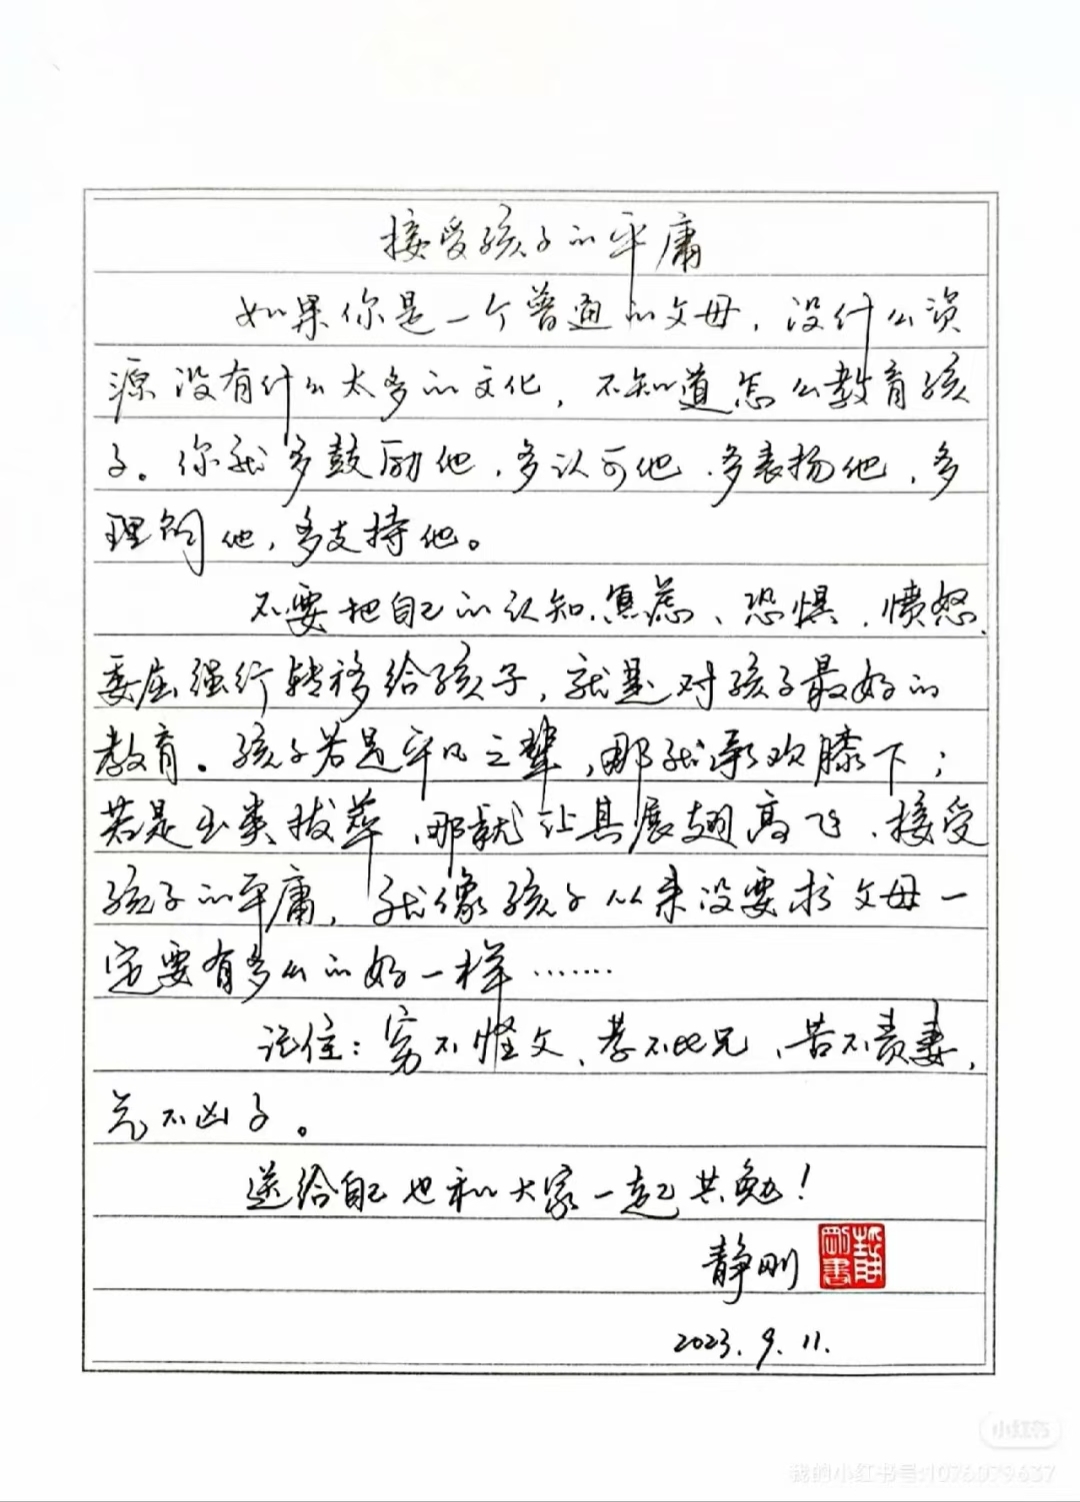 接受孩子的平庸
如果你是一个普通的父母，没什么资
源没有什么太多的文化，不知道怎么教育孩
子。你就多鼓励他，多认可他，多表扬他，多
理解他，多支持他。
不要把自己的认知、焦虑、恐惧、愤怒、
委屈强行转移给孩子，就是对孩子最好的
教育。孩子若是平凡之辈，那就承欢膝下；
若是出类拔萃，那就让其展翅高飞，接受
孩子的平庸，就像孩子从来没要求父母一
定要有多么的好一样……
记住：穷不怪父、孝不比兄、苦不责妻，
气不凶子。
送给自己也和大家一起共勉！
静刚
静刚书
2023.9.11.
小红书
我的小红书号:1076079637